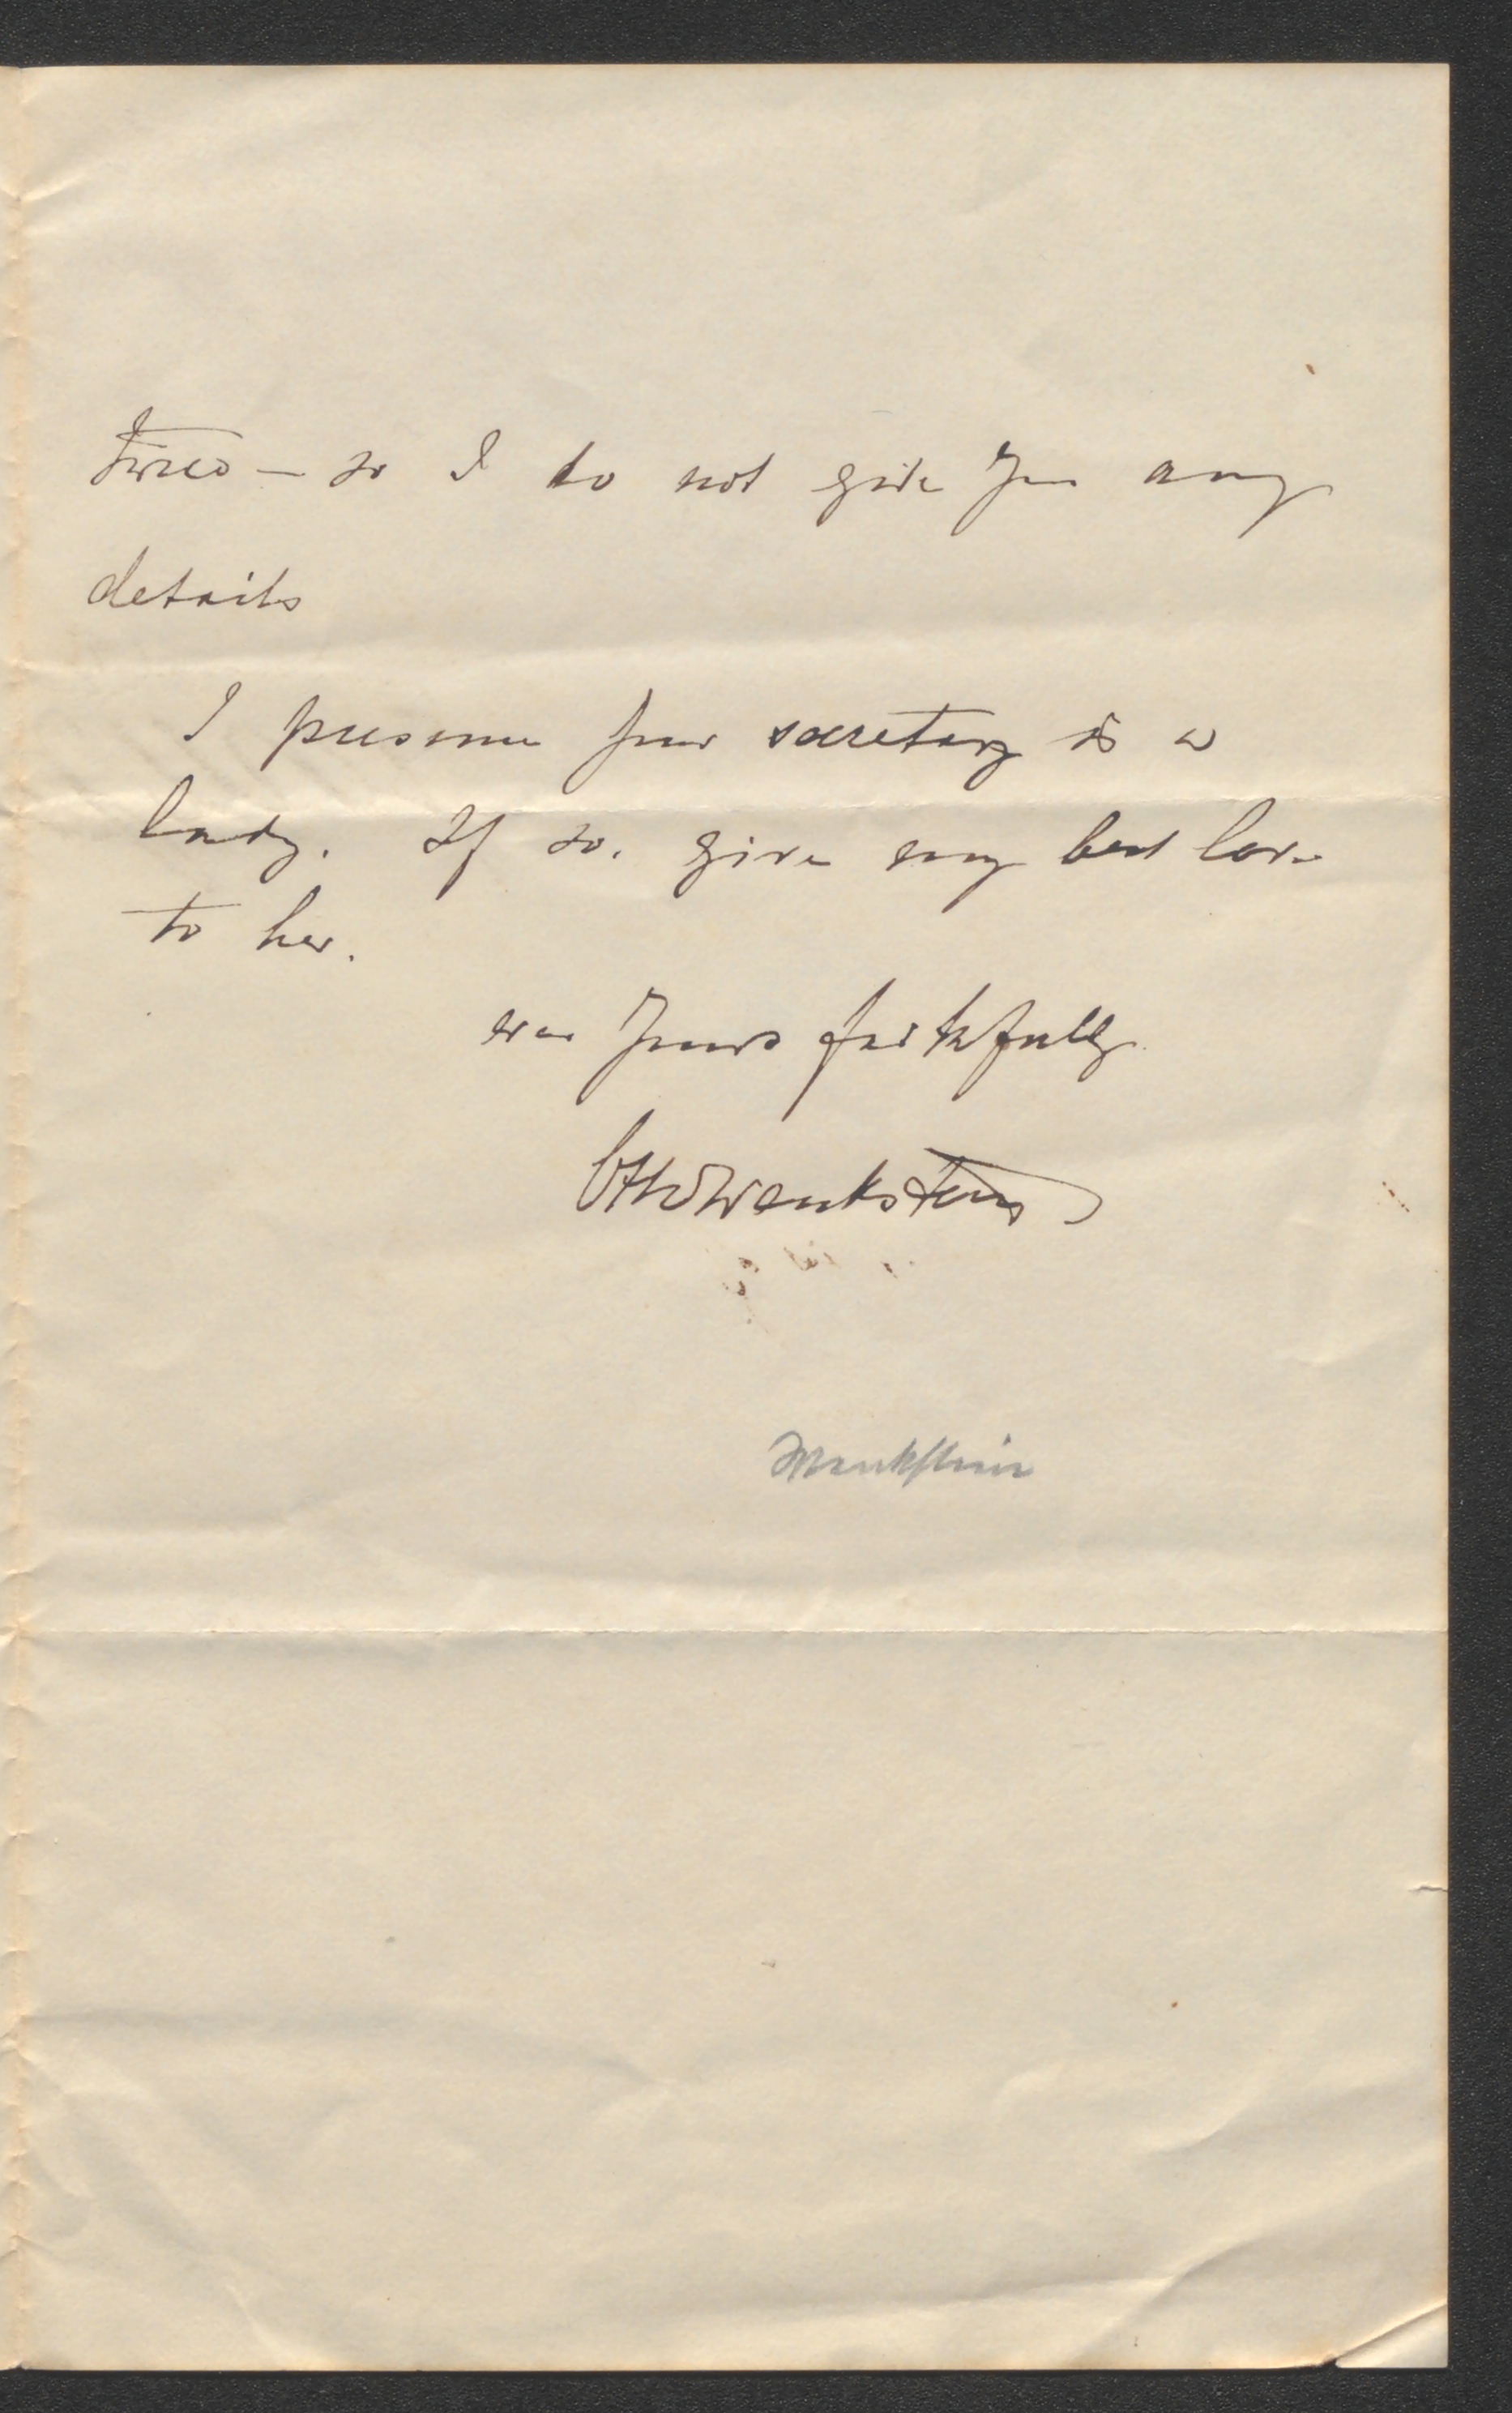 — so I do not give you any
details
I presume your secretary is a
lady. If so. give my best love
to her.
ever Yours faithfully
Otto Wenkstern
Wenkstein